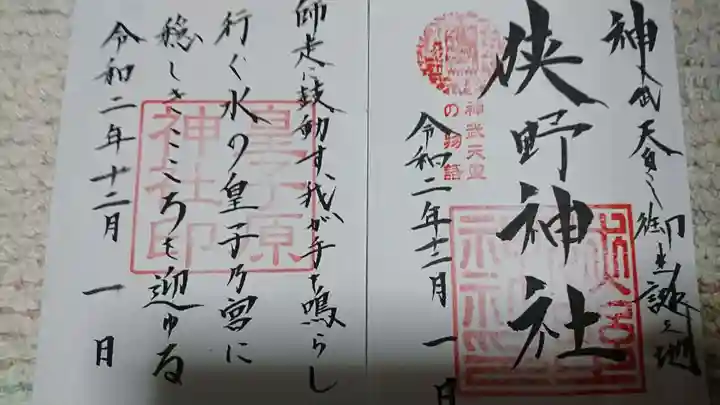 神武天皇御生誕之地
狭野神社
神武天皇
の物語
令和二年十二月一日
師走に鼓動す、我が手を鳴らし
行く水の皇子乃宮に
穏しきこころを迎ゆる
令和二年十二月一日
皇子原
神社印